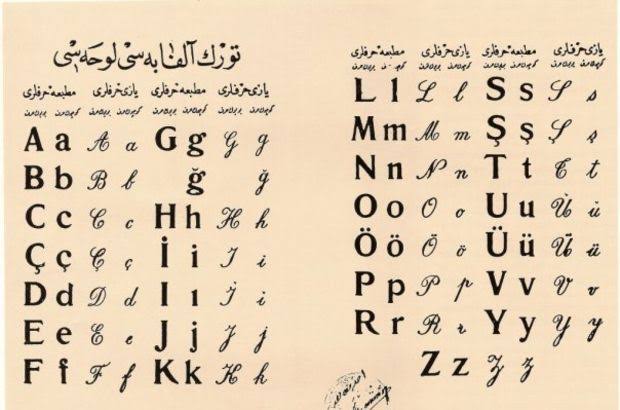 تورك آلفابه سی لوحه سی
یازی حرفلری مطبعه حرفلری یازی حرفلری مطبعه حرفلری
A a A a G g G g
B b B b ğ ğ
C c C c H h H h
Ç ç Ç ç İ i I i
D d D d I ı İ i
E e E e J j J j
F f F f K k K k
یازی حرفلری مطبعه حرفلری یازی حرفلری مطبعه حرفلری
L l L l S s S s
M m M m Ş ş Ş ş
N n N n T t T t
O o O o U u U u
Ö ö Ö ö Ü ü Ü ü
P p P p V v V v
R r R r Y y Y y
Z z Z z